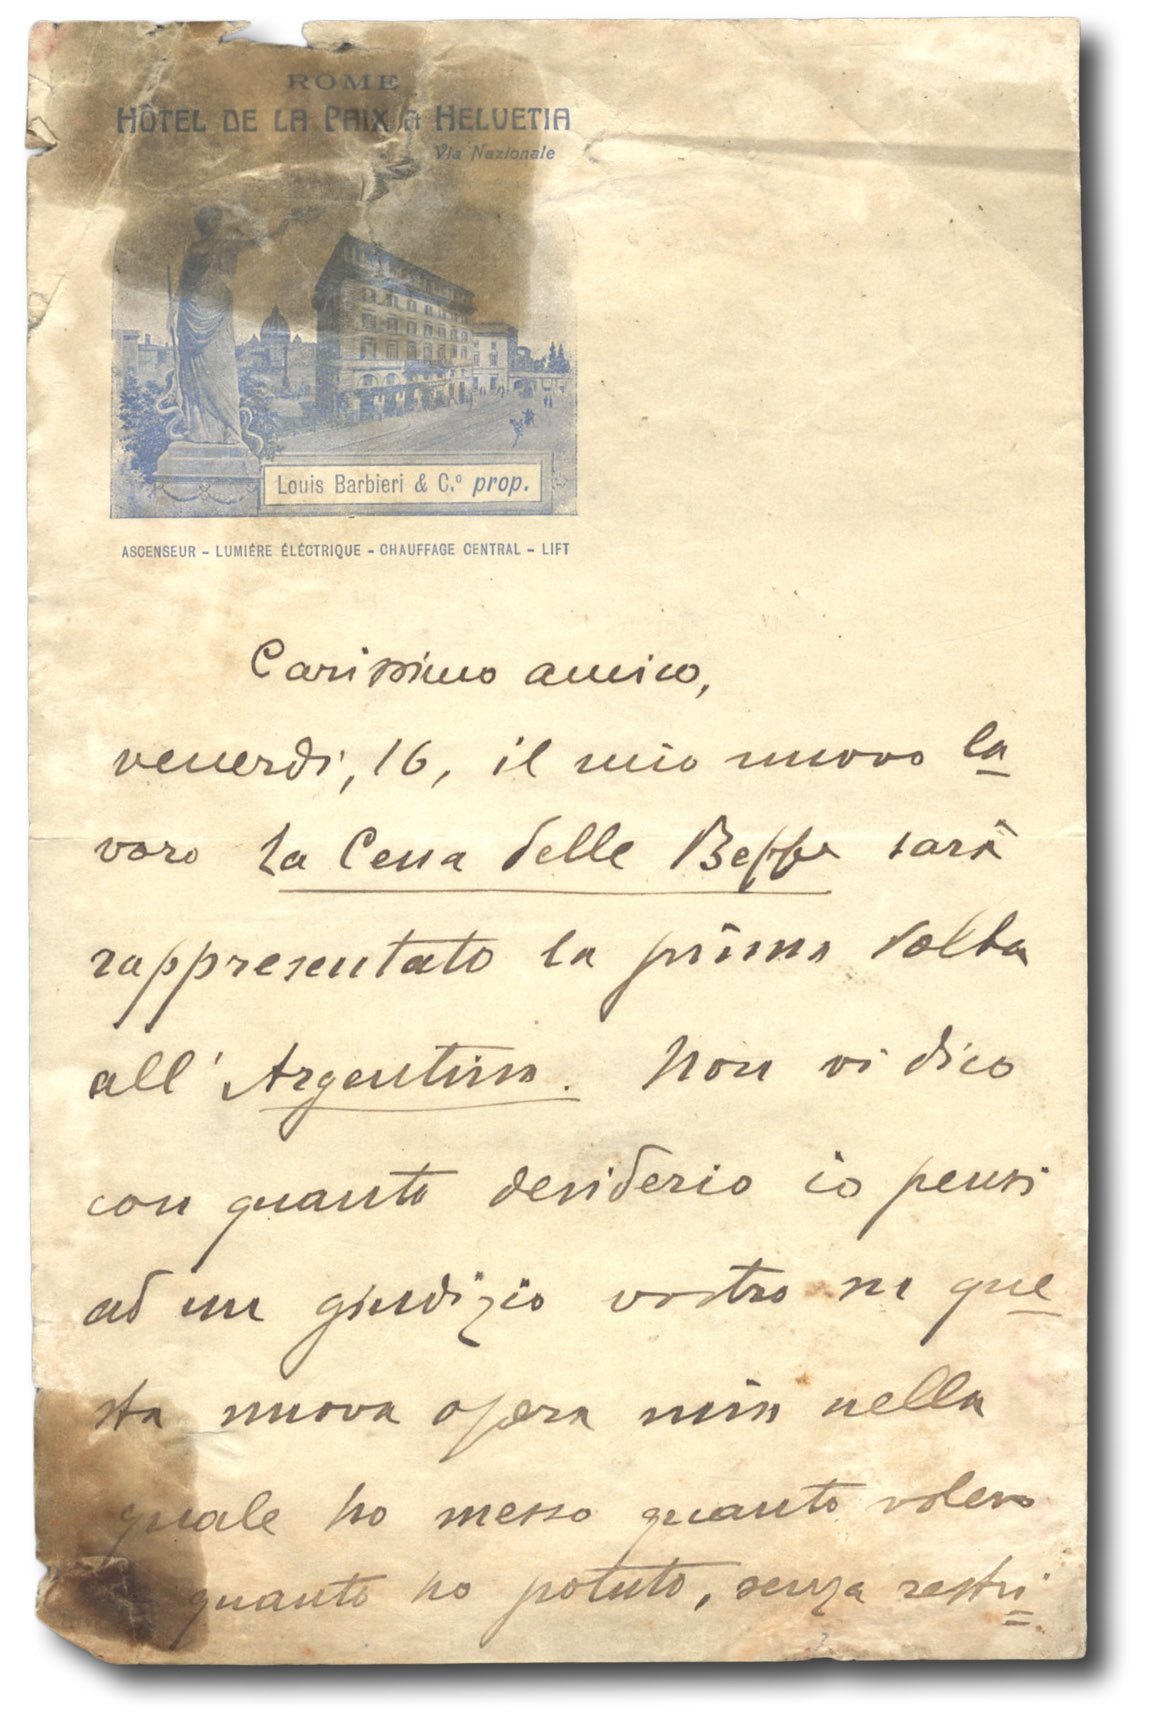 ROME
HÔTEL DE LA PAIX & HELVETIA
Via Nazionale
Louis Barbieri & C.º prop.
ASCENSEUR – LUMIÈRE ÉLÉCTRIQUE – CHAUFFAGE CENTRAL – LIFT
Carissimo amico,
venerdì, 16, il mio nuovo la
voro La Cena delle Beffe sarà
rappresentato la prima volta
all'Argentina. Non vi dico
con quanto desiderio io pensi
ad un giudizio vostro su que
sta nuova opera mia nella
quale ho messo quanto volevo
quanto ho potuto, senza restri